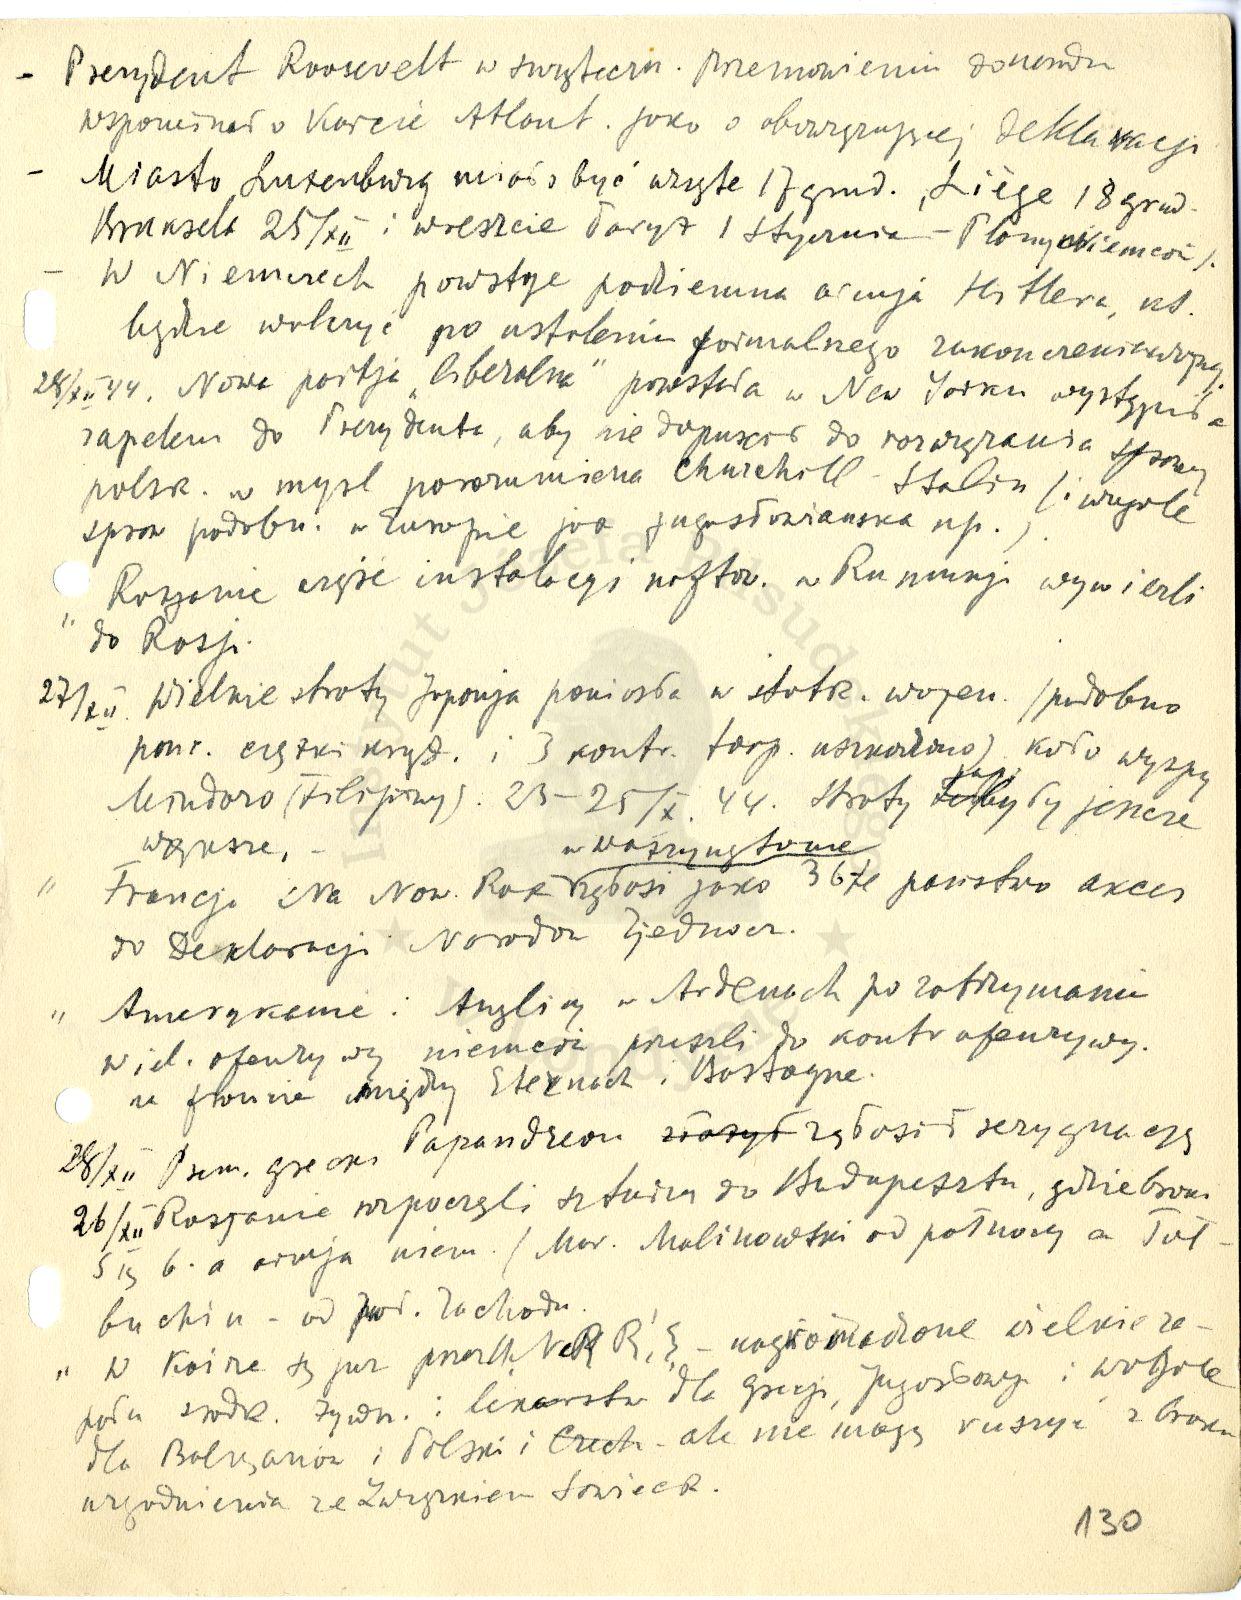 - Prezydent Roosevelt w świąteczn. przemówieniu do narodu
wspominał o Karcie Atlant. jako o obowiązującej deklaracji
- Miasto Luxenburg miało być wzięte 17 grud., Liége 18 grud.
Bruksela 25/XII i wreszcie Paryż 1 stycznia - Plany Niemców).
- W Niemczech powstaje podziemna armja Hitlera, kt.
będzie walczyć po ustaleniu formalnego zakończenia wojny.
28/XII 44. Nowa partja „liberalna" powstała w New Yorku wystąpiła z
apelem do Prezydenta, aby nie dopuścił do rozwiązania sprawy
polsk. w myśl porozumienia Churchill - Stalin (i wogóle
spraw podobn. w Europie jak jugosłowiańska np.)
" Rosjanie część instalacji naftow. w Rumunji wywieźli
do Rosji.
27/XII. Wielkie straty Japonja poniosła w statk. wojen. (podobno
panc. ciężki krąż. i 3 kontr. torp. uszkodzono) koło wyspy
Mindoro (Filipiny). 23-25/X. 44. straty jap. były jeszcze
większe. -
w Waszyngtonie
" Francja Na Now. Rok zgłosi jako 36te państwo akces
do Deklaracji Narodów Zjednocz.
" Amerykanie i Anglicy w Ardenach po zatrzymaniu
wiel. ofenzywy niemców przeszli do kontrofenzywy.
na froncie między Eternach i Bastogne.
28/XII Prem. grecki Papandreou złożył zgłosił rezygnację
26/XII Rosjanie rozpoczęli szturm do Budapesztu, gdzie broni
się 6-a armja niem. (Mar. Malinowski od północy a Toł-
buchin - od połd. zachodu.
" W Kairze są już przez UNRRĘ - nagromadzone wielkie za-
pasy środk. żywn. i lekarstw dla Grecji, Jugosławji i wogóle
dla Bałkanów i Polski i Czech - ale nie mogą ruszyć z braku
uzgodnienia ze Związkiem Sowieck.
130
Instytut Józefa Piłsudskiego